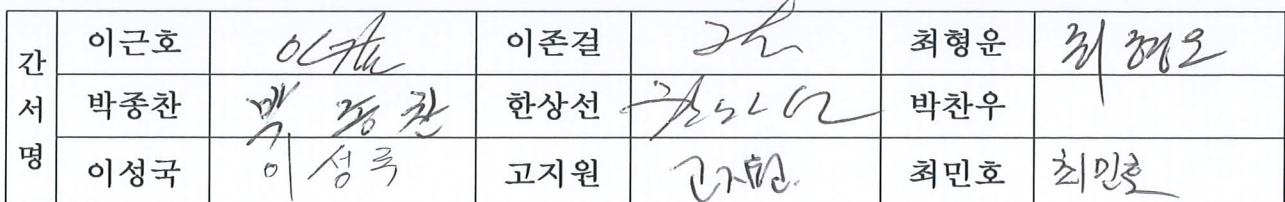 간 서 명
이근호 이존결 최형운 최형오
박종찬 박종찬 한상선 박찬우
이성국 이성국 고지원 고지원 최민호 최민호